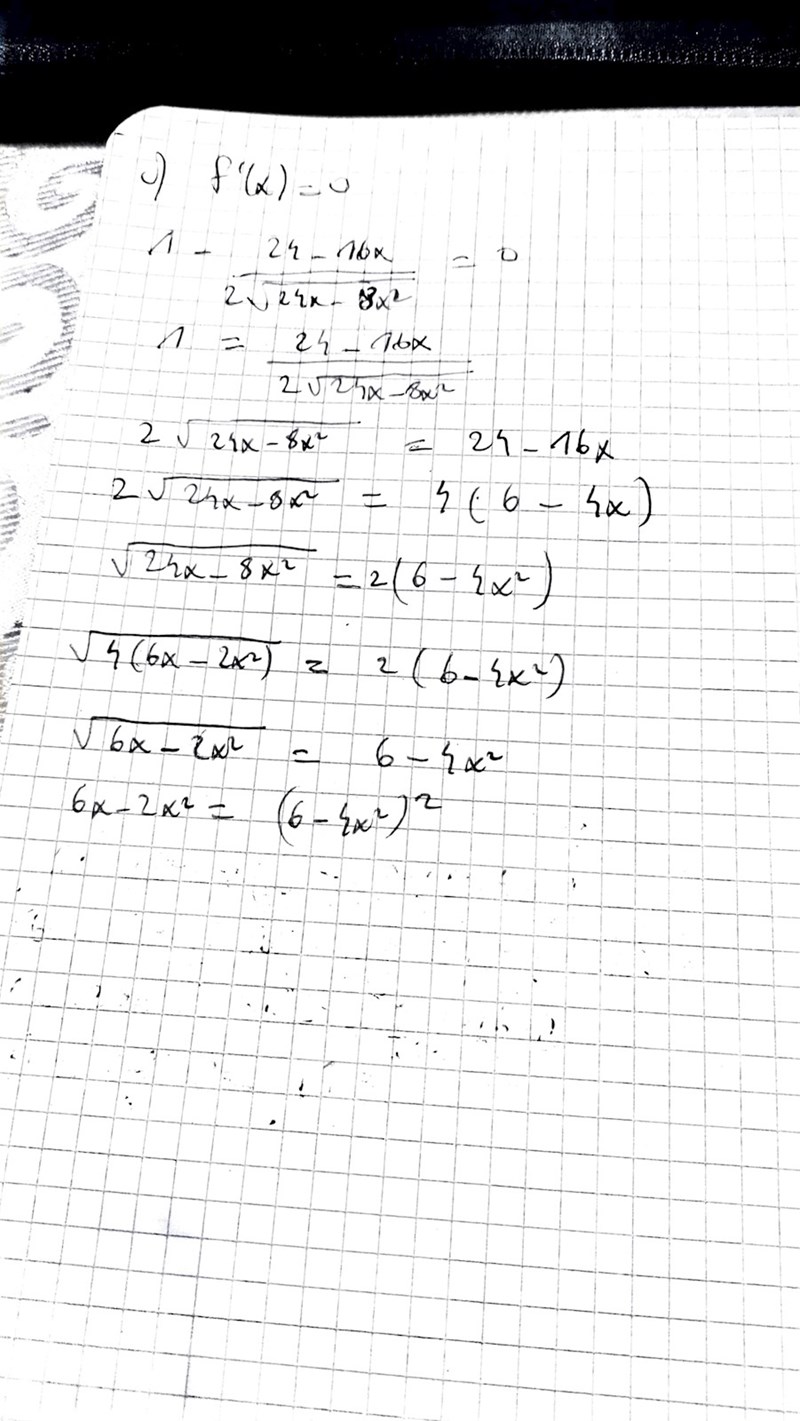 c) f'(x) = 0
1 - (24 - 16x)/(2√(24x - 8x²)) = 0
1 = (24 - 16x)/(2√(24x - 8x²))
2√(24x - 8x²) = 24 - 16x
2√(24x - 8x²) = 4(6 - 4x)
√(24x - 8x²) = 2(6 - 4x²)
√(4(6x - 2x²)) = 2(6 - 4x²)
√(6x - 2x²) = 6 - 4x²
6x - 2x² = (6 - 4x²)²